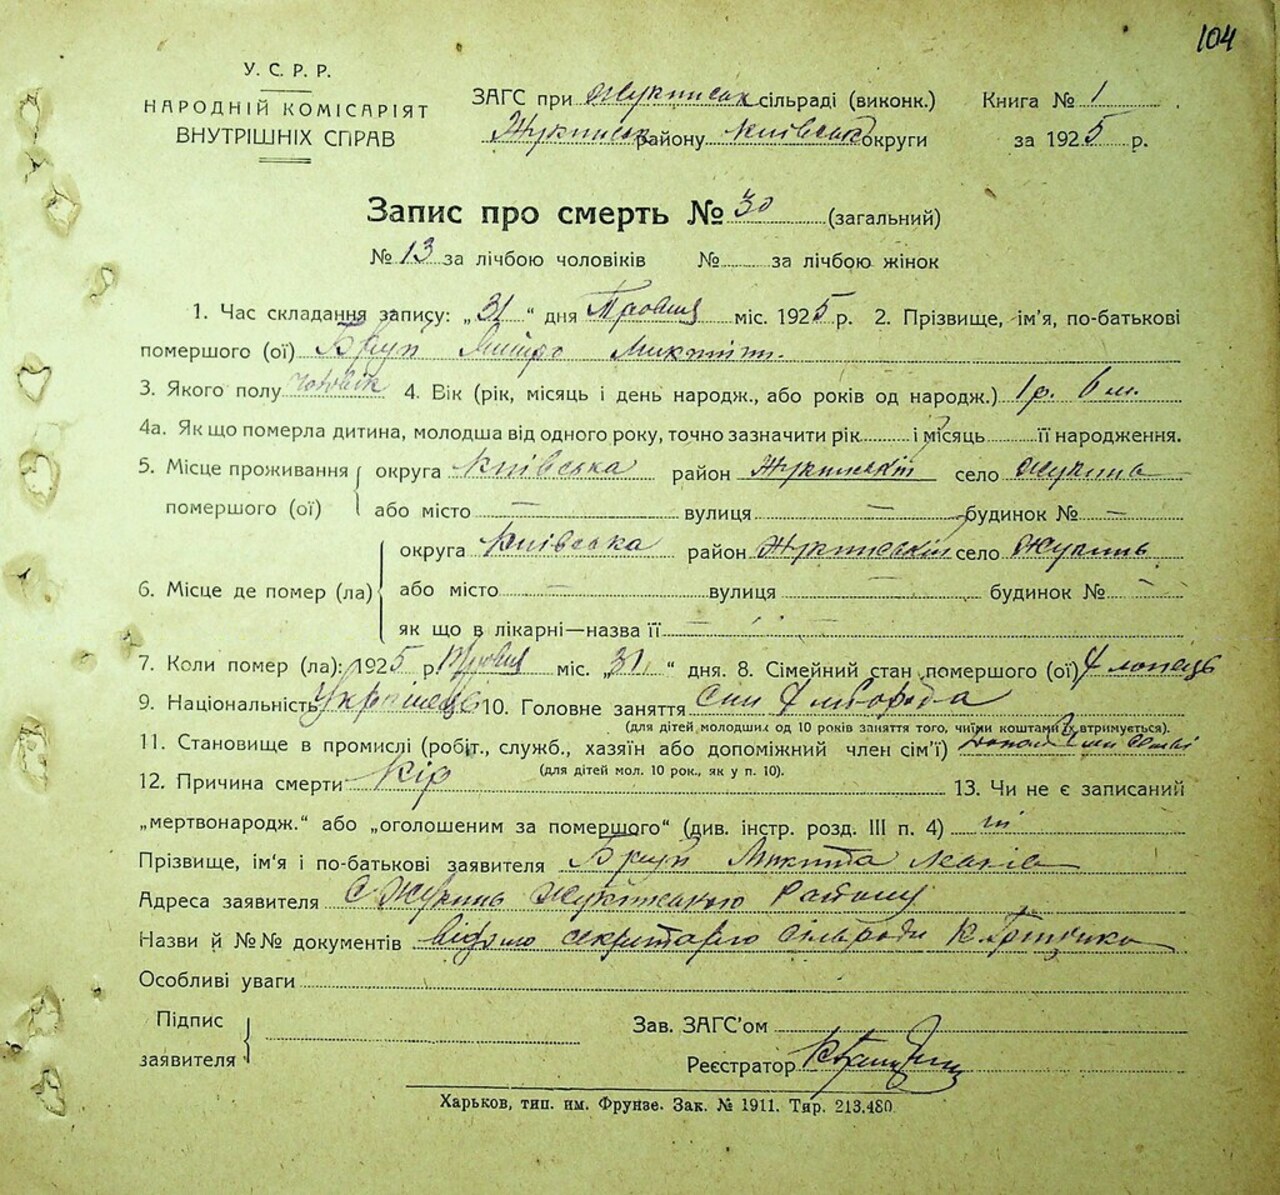 104
У. С. Р. Р.
НАРОДНІЙ КОМІСАРІЯТ
ВНУТРІШНІХ СПРАВ
ЗАГС при Жукинськ сільраді (виконк.)
Жукинськ району Київськ округи
Книга № 1
за 1925 р.
Запис про смерть № 30 (загальний)
№ 13 за лічбою чоловіків № за лічбою жінок
1. Час складання запису: „31“ дня Травня міс. 1925 р. 2. Прізвище, ім'я, по-батькові
помершого (ої) Микит.
3. Якого полу чоловік 4. Вік (рік, місяць і день народж., або років од народж.) 1 р. 6 м.
4а. Як що померла дитина, молодша від одного року, точно зазначити рік і місяць її народження.
5. Місце проживання помершого (ої) округа Київська район Жукинський село Жукинь
або місто — вулиця — будинок № —
6. Місце де помер (ла) округа Київська район Жукинський село Жукинь
або місто — вулиця — будинок № —
як що в лікарні—назва її —
7. Коли помер (ла): 1925 р. Травня міс. „31“ дня. 8. Сімейний стан помершого (ої) Хлопець
9. Національність Українець 10. Головне заняття Син Хлібороба
(для дітей молодших од 10 років заняття того, чиїми коштами їх втримується).
11. Становище в промислі (робіт., служб., хазяїн або допоміжний член сім'ї)
(для дітей мол. 10 рок., як у п. 10).
12. Причина смерти Кір 13. Чи не є записаний
„мертвонародж.“ або „оголошеним за помершого“ (див. інстр. розд. III п. 4) ні
Прізвище, ім'я і по-батькові заявителя Микита
Адреса заявителя С. Жукинь Жукинського Району
Назви й №№ документів відомо секритарю Сільради К.
Особливі уваги
Підпис заявителя
Зав. ЗАГС'ом
Реєстратор
Харьков, тип. им. Фрунзе. Зак. № 1911. Тир. 213.480.